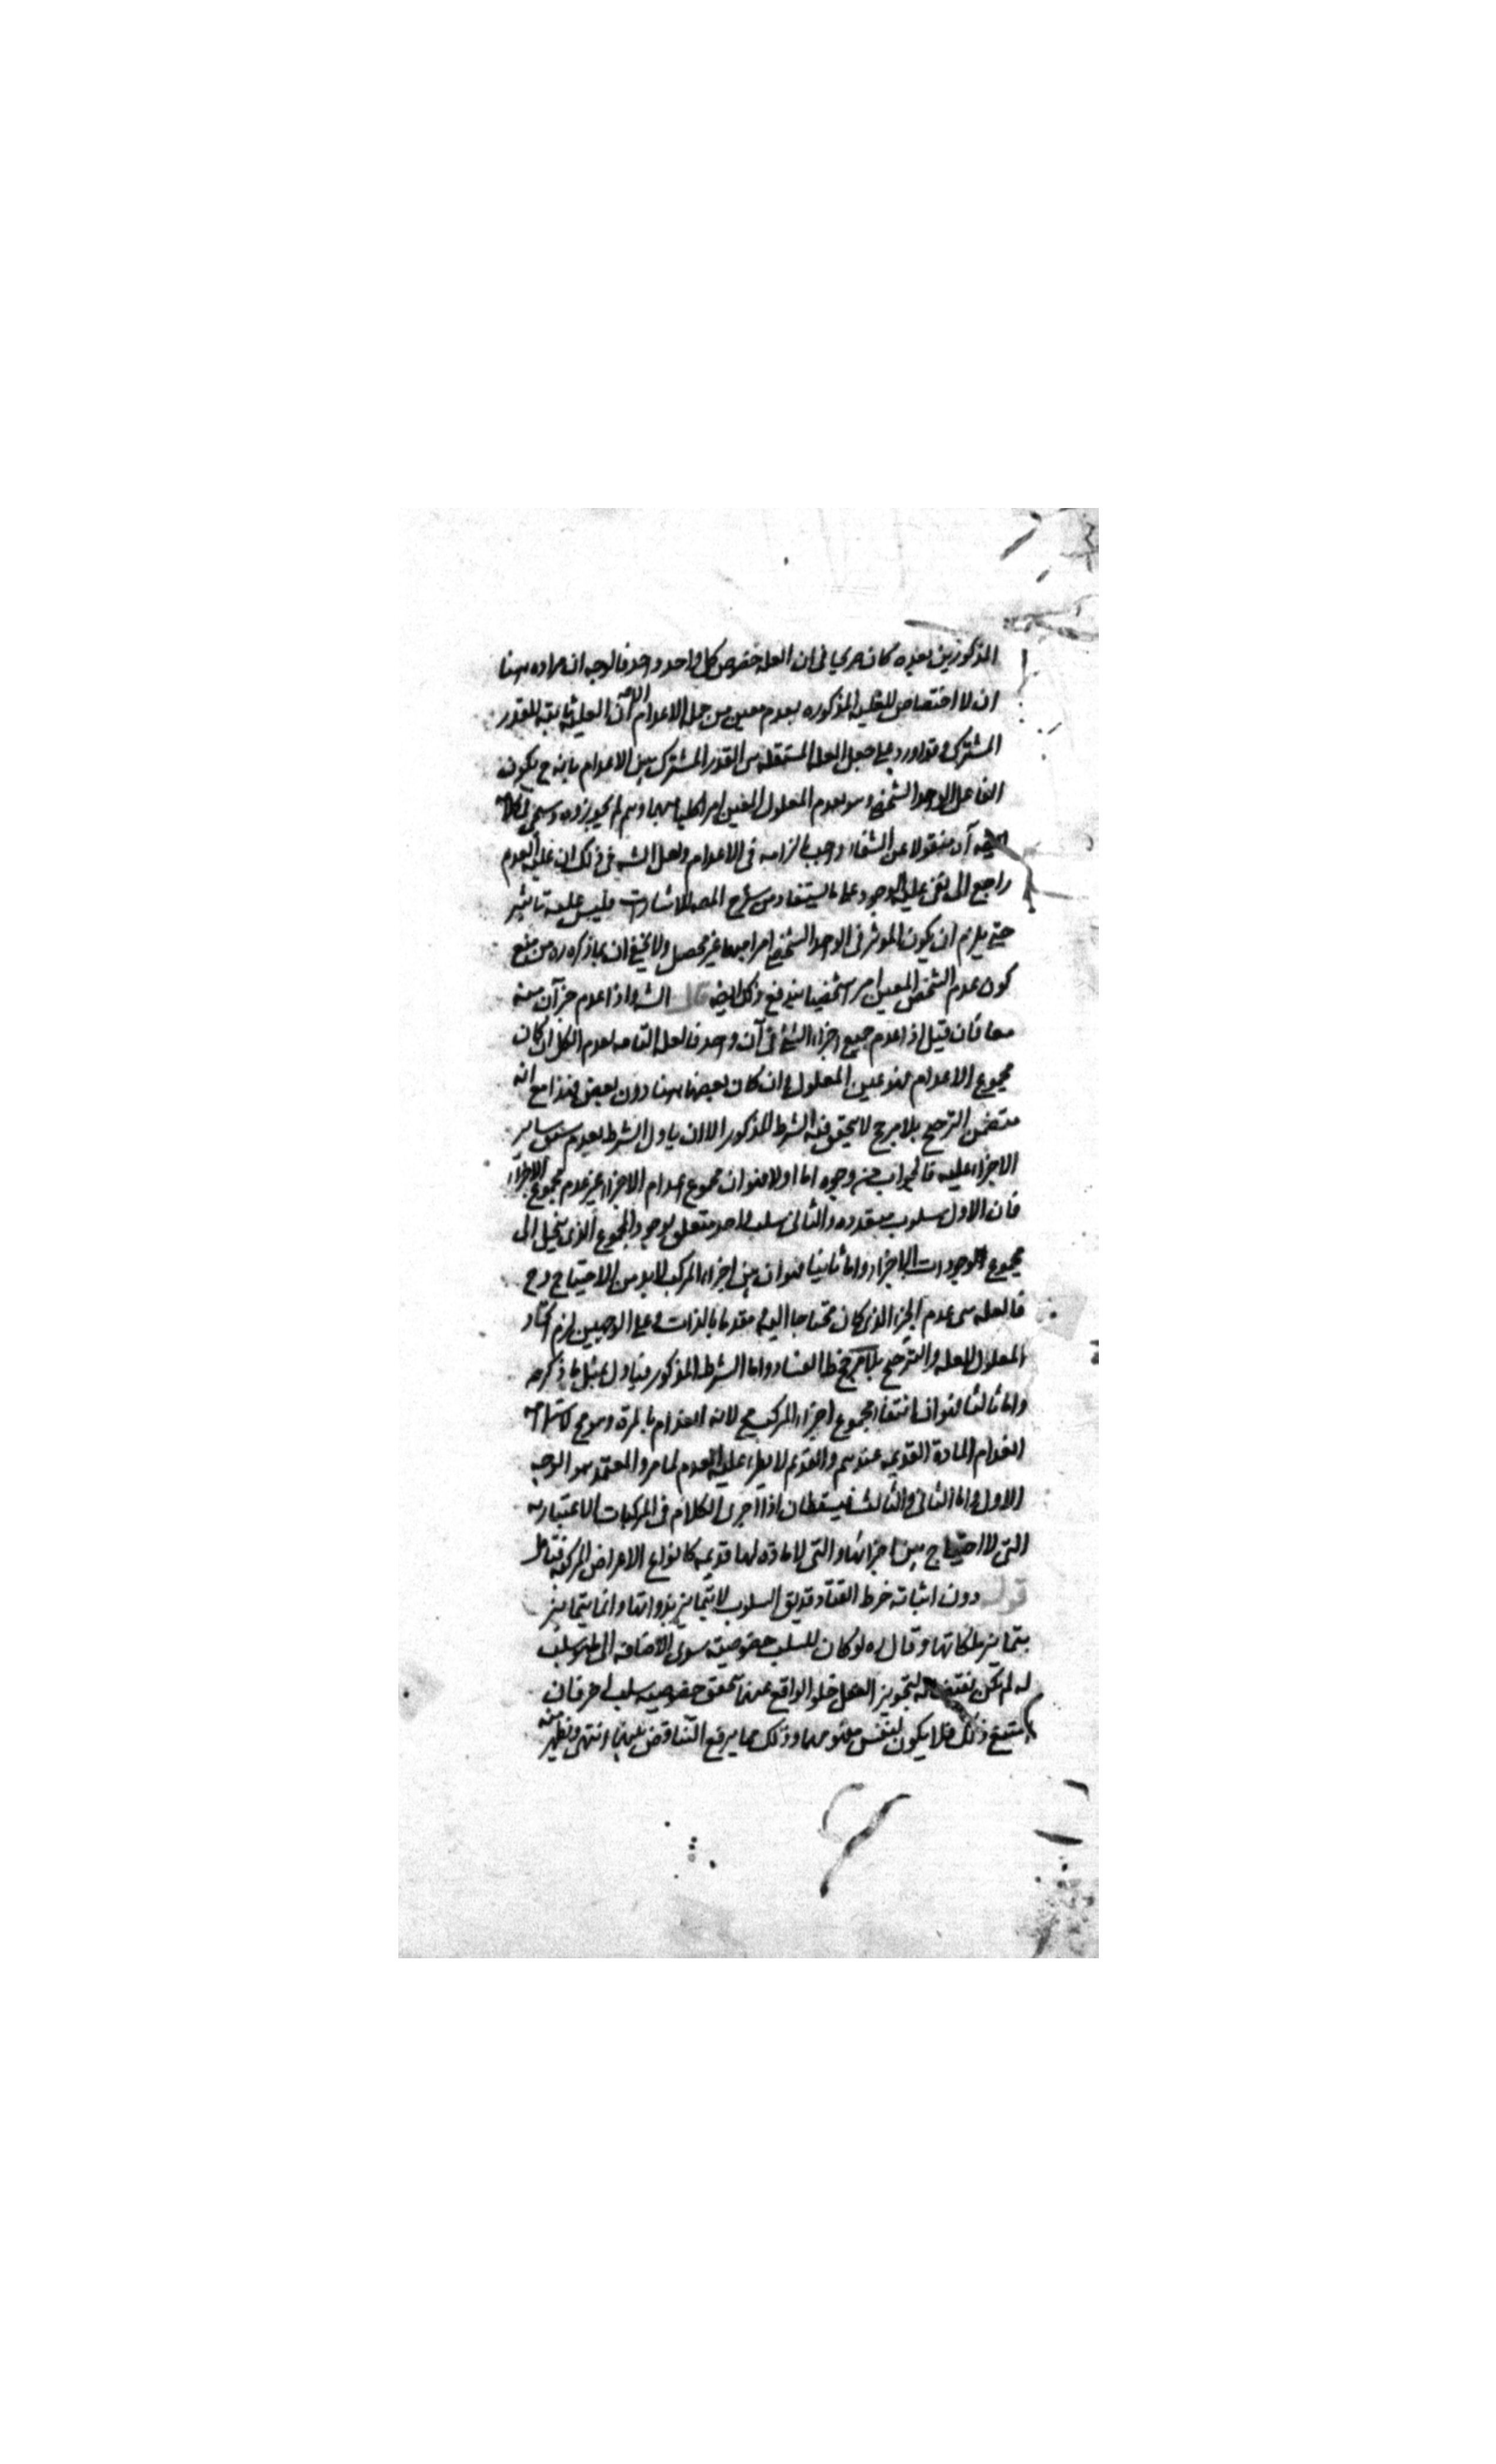 المذكورين بعيده كان صريحا فى ان العله خصوص كل واحد واحد فالوجه ان مراده ههنا
ان لا اختصاص للعليه المذكوره بعدم معين من جمله الاعدام ان العليه ثابته للقدر
المشترك وقد اورد على جعل العله المستقله هى القدر المشترك بين الاعدام بانه ح يكون
الفاعل للواحد الشخصى وهو عدم المعلول المعين امرا كليا مبهما وهم لم يجوزوه وسيجئ
منقولا عن الشفاء وجب التزامه فى الاعدام ولعل السر فى ذلك ان عليه العدم
راجع الى نفى عليه الوجود على ما يستفاد من شرح المص للاشارات فليس عليته تاثير
حتى يلزم ان يكون الموثر فى الواحد الشخصى امرا مبهما غير محصل ولا يخفى ان بما ذكره ره من منع
كون عدم الشخص المعين امرا شخصيا يندفع ذلك ايضه قال الش واذا عدم جزآن منه
معا فان قيل اذا عدم جميع اجزاء الشئ فى آن واحد فالعله التامه لعدم الكل ان كان
مجموع الاعدام فهو عين المعلول وان كان بعضها ههنا دون بعض فهذا مع انه
متضمن الترجيح بلا مرجح لا يتحقق فيه الشرط المذكور الا ان ياول الشرط بعدم سبق ساير
الاجزاء عليه فالجواب من وجوه اما اولا فهو ان مجموع اعدام الاجزاء غير عدم مجموع الاجزاء
فان الاول سلوب متعدده والثانى سلب واحد متعلق بوجود المجموع الذى ينحل الى
مجموع الوجودات الاجزاء واما ثانيا فهو ان بين اجزاء المركب لابد من الاحتياج وح
فالعله هى عدم الجزء الذى كان محتاجا اليه مقدما بالذات وعلى الوجهين لزم اتحاد
المعلول للعله والترجيح بلا مرجح ظ الفساد واما الشرط المذكور فياول بمثل ما ذكره
واما ثالثا فهو ان انتفاء مجموع اجزاء المركب مح لانه انعدام بالمره وهو مح لاستلزامه
انعدام المادة القديمه عندهم والقديم لا يطرء عليه العدم لما مر والمعتمد هو الوجه
الاول واما الثانى والثالث فيسقطان اذا اجرى الكلام فى المركبات الاعتباريه
التى لا احتياج بين اجزائها والتى لا ماده لها قديمه كانواع الاعراض المركبه فتامل
قوله دون اثباته خرط القتاد قد يق السلوب لا يتمايز بذواتها وانما يتمايز
بتمايز ملكاتها وقال ره لو كان للسلب خصوصيه سوى الاضافه الى
له لم يكن لتجويز العقل خلو الواقع عنهما تحقق خصوصيه سلب اخر فان
امتنع ذلك فلا يكون لنفس مفهومهما وذلك مما يرفع التناقض بينهما انتهى ويظهر منه